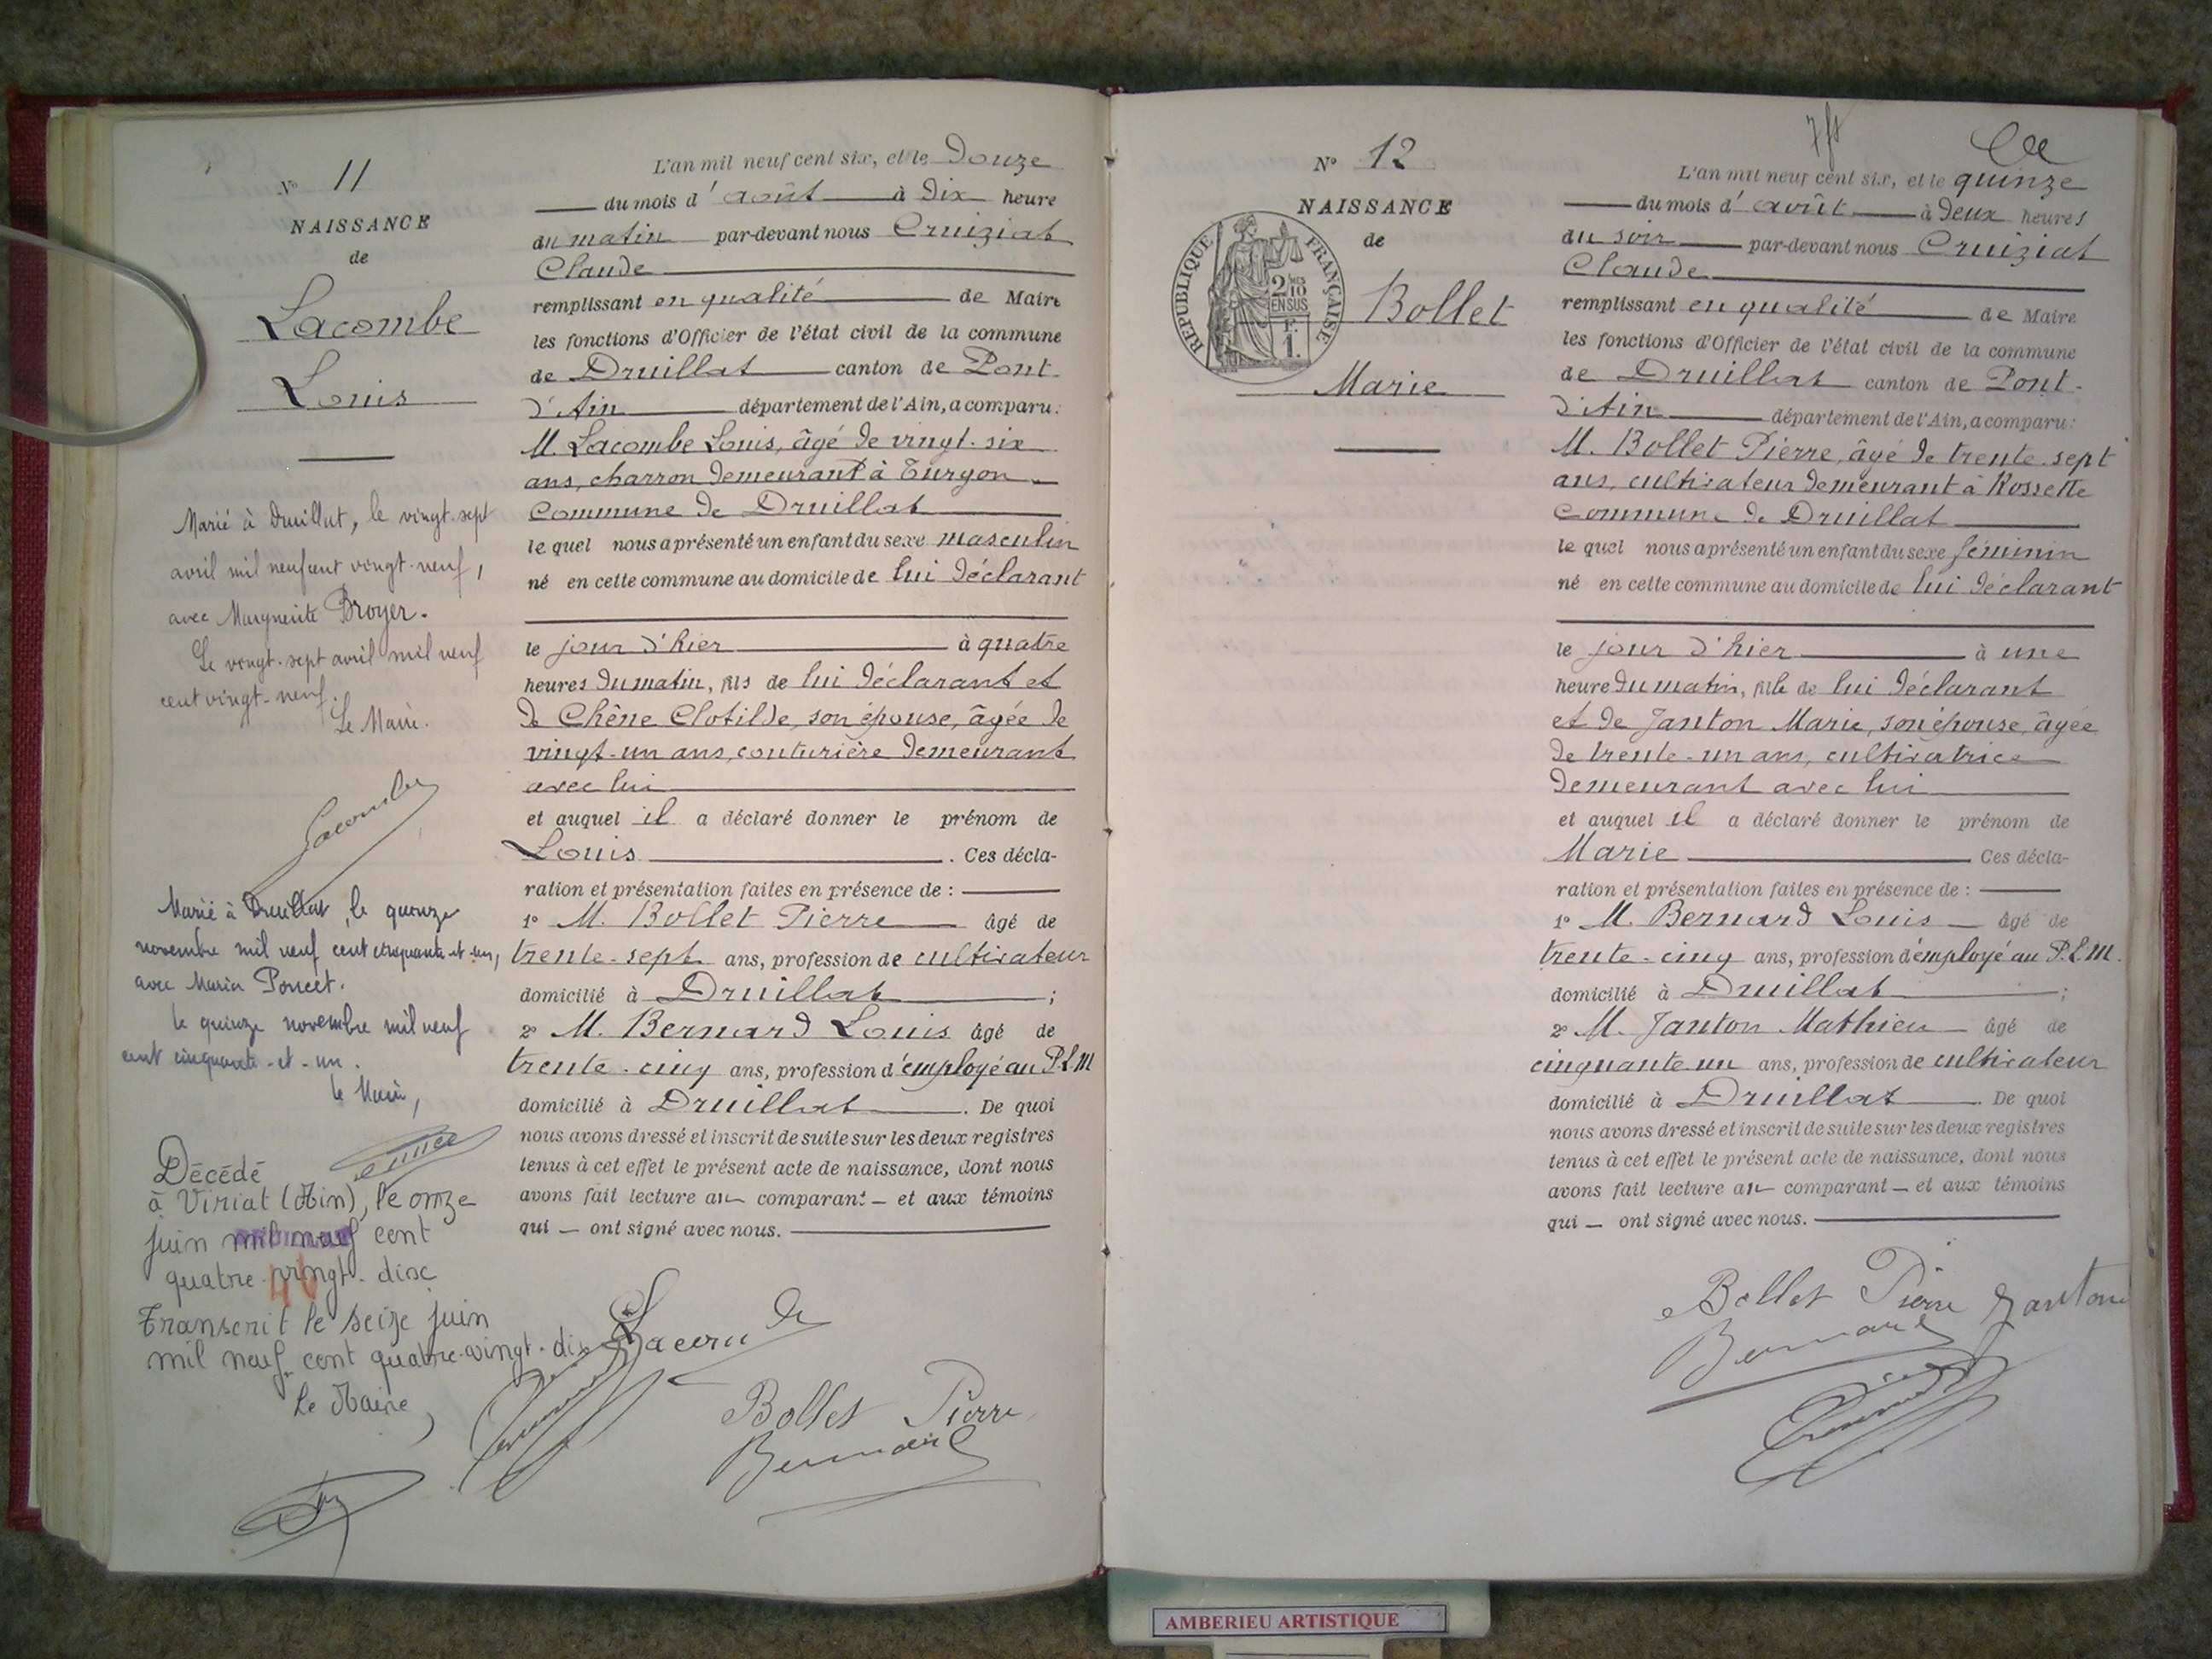 N° 11
NAISSANCE
de
Lacombe
Louis
Marié à Druillat, le vingt-sept
avril mil neuf cent vingt-neuf,
avec Marguerite Broyer.
Le vingt-sept avril mil neuf
cent vingt-neuf.
Le Maire.
Lacombe
Marié à Druillat, le quinze
novembre mil neuf cent cinquante-et-un,
avec Maria Poncet.
le quinze novembre mil neuf
cent cinquante-et-un.
le Maire,
Décédé
à Viriat (Ain), le onze
juin mil neuf cent
quatre-vingt-dix
Transcrit le seize juin
mil neuf cent quatre-vingt-dix
Le Maire,
L'an mil neuf cent six, et le Douze
du mois d'août à Dix heure
du matin par-devant nous Cruiziat
Claude
remplissant en qualité de Maire
les fonctions d'Officier de l'état civil de la commune
de Druillat canton de Pont-
d'Ain département de l'Ain, a comparu:
M. Lacombe Louis, âgé de vingt-six
ans, charron demeurant à Turgon
Commune de Druillat
le quel nous a présenté un enfant du sexe masculin
né en cette commune au domicile de lui déclarant
le jour d'hier à quatre
heures du matin, fils de lui déclarant et
de Chêne Clotilde, son épouse, âgée de
vingt-un ans, couturière demeurant
avec lui
et auquel il a déclaré donner le prénom de
Louis. Ces décla-
ration et présentation faites en présence de :
1° M. Bollet Pierre âgé de
trente-sept ans, profession de cultivateur
domicilié à Druillat ;
2° M. Bernard Louis âgé de
trente-cinq ans, profession d'employé au P.L.M
domicilié à Druillat. De quoi
nous avons dressé et inscrit de suite sur les deux registres
tenus à cet effet le présent acte de naissance, dont nous
avons fait lecture au comparant et aux témoins
qui ont signé avec nous.
Bollet Pierre
Bernard
N° 12
NAISSANCE
de
RÉPUBLIQUE FRANÇAISE
2/10
EN SUS
1 F.
Bollet
Marie
L'an mil neuf cent six, et le quinze
du mois d'août à Deux heures
du soir par-devant nous Cruiziat
Claude
remplissant en qualité de Maire
les fonctions d'Officier de l'état civil de la commune
de Druillat canton de Pont-
d'Ain département de l'Ain, a comparu:
M. Bollet Pierre, âgé de trente-sept
ans, cultivateur demeurant à Rossette
Commune de Druillat
le quel nous a présenté un enfant du sexe féminin
né en cette commune au domicile de lui déclarant
le jour d'hier à une
heure du matin, fille de lui déclarant
et de Janton Marie, son épouse, âgée
de trente-un ans, cultivatrice
demeurant avec lui
et auquel il a déclaré donner le prénom de
Marie Ces décla-
ration et présentation faites en présence de :
1° M. Bernard Louis âgé de
trente-cinq ans, profession d'employé au P.L.M.
domicilié à Druillat ;
2° M. Janton Mathieu âgé de
cinquante un ans, profession de cultivateur
domicilié à Druillat De quoi
nous avons dressé et inscrit de suite sur les deux registres
tenus à cet effet le présent acte de naissance, dont nous
avons fait lecture au comparant et aux témoins
qui ont signé avec nous.
Bollet Pierre Janton
Bernard
AMBERIEU ARTISTIQUE